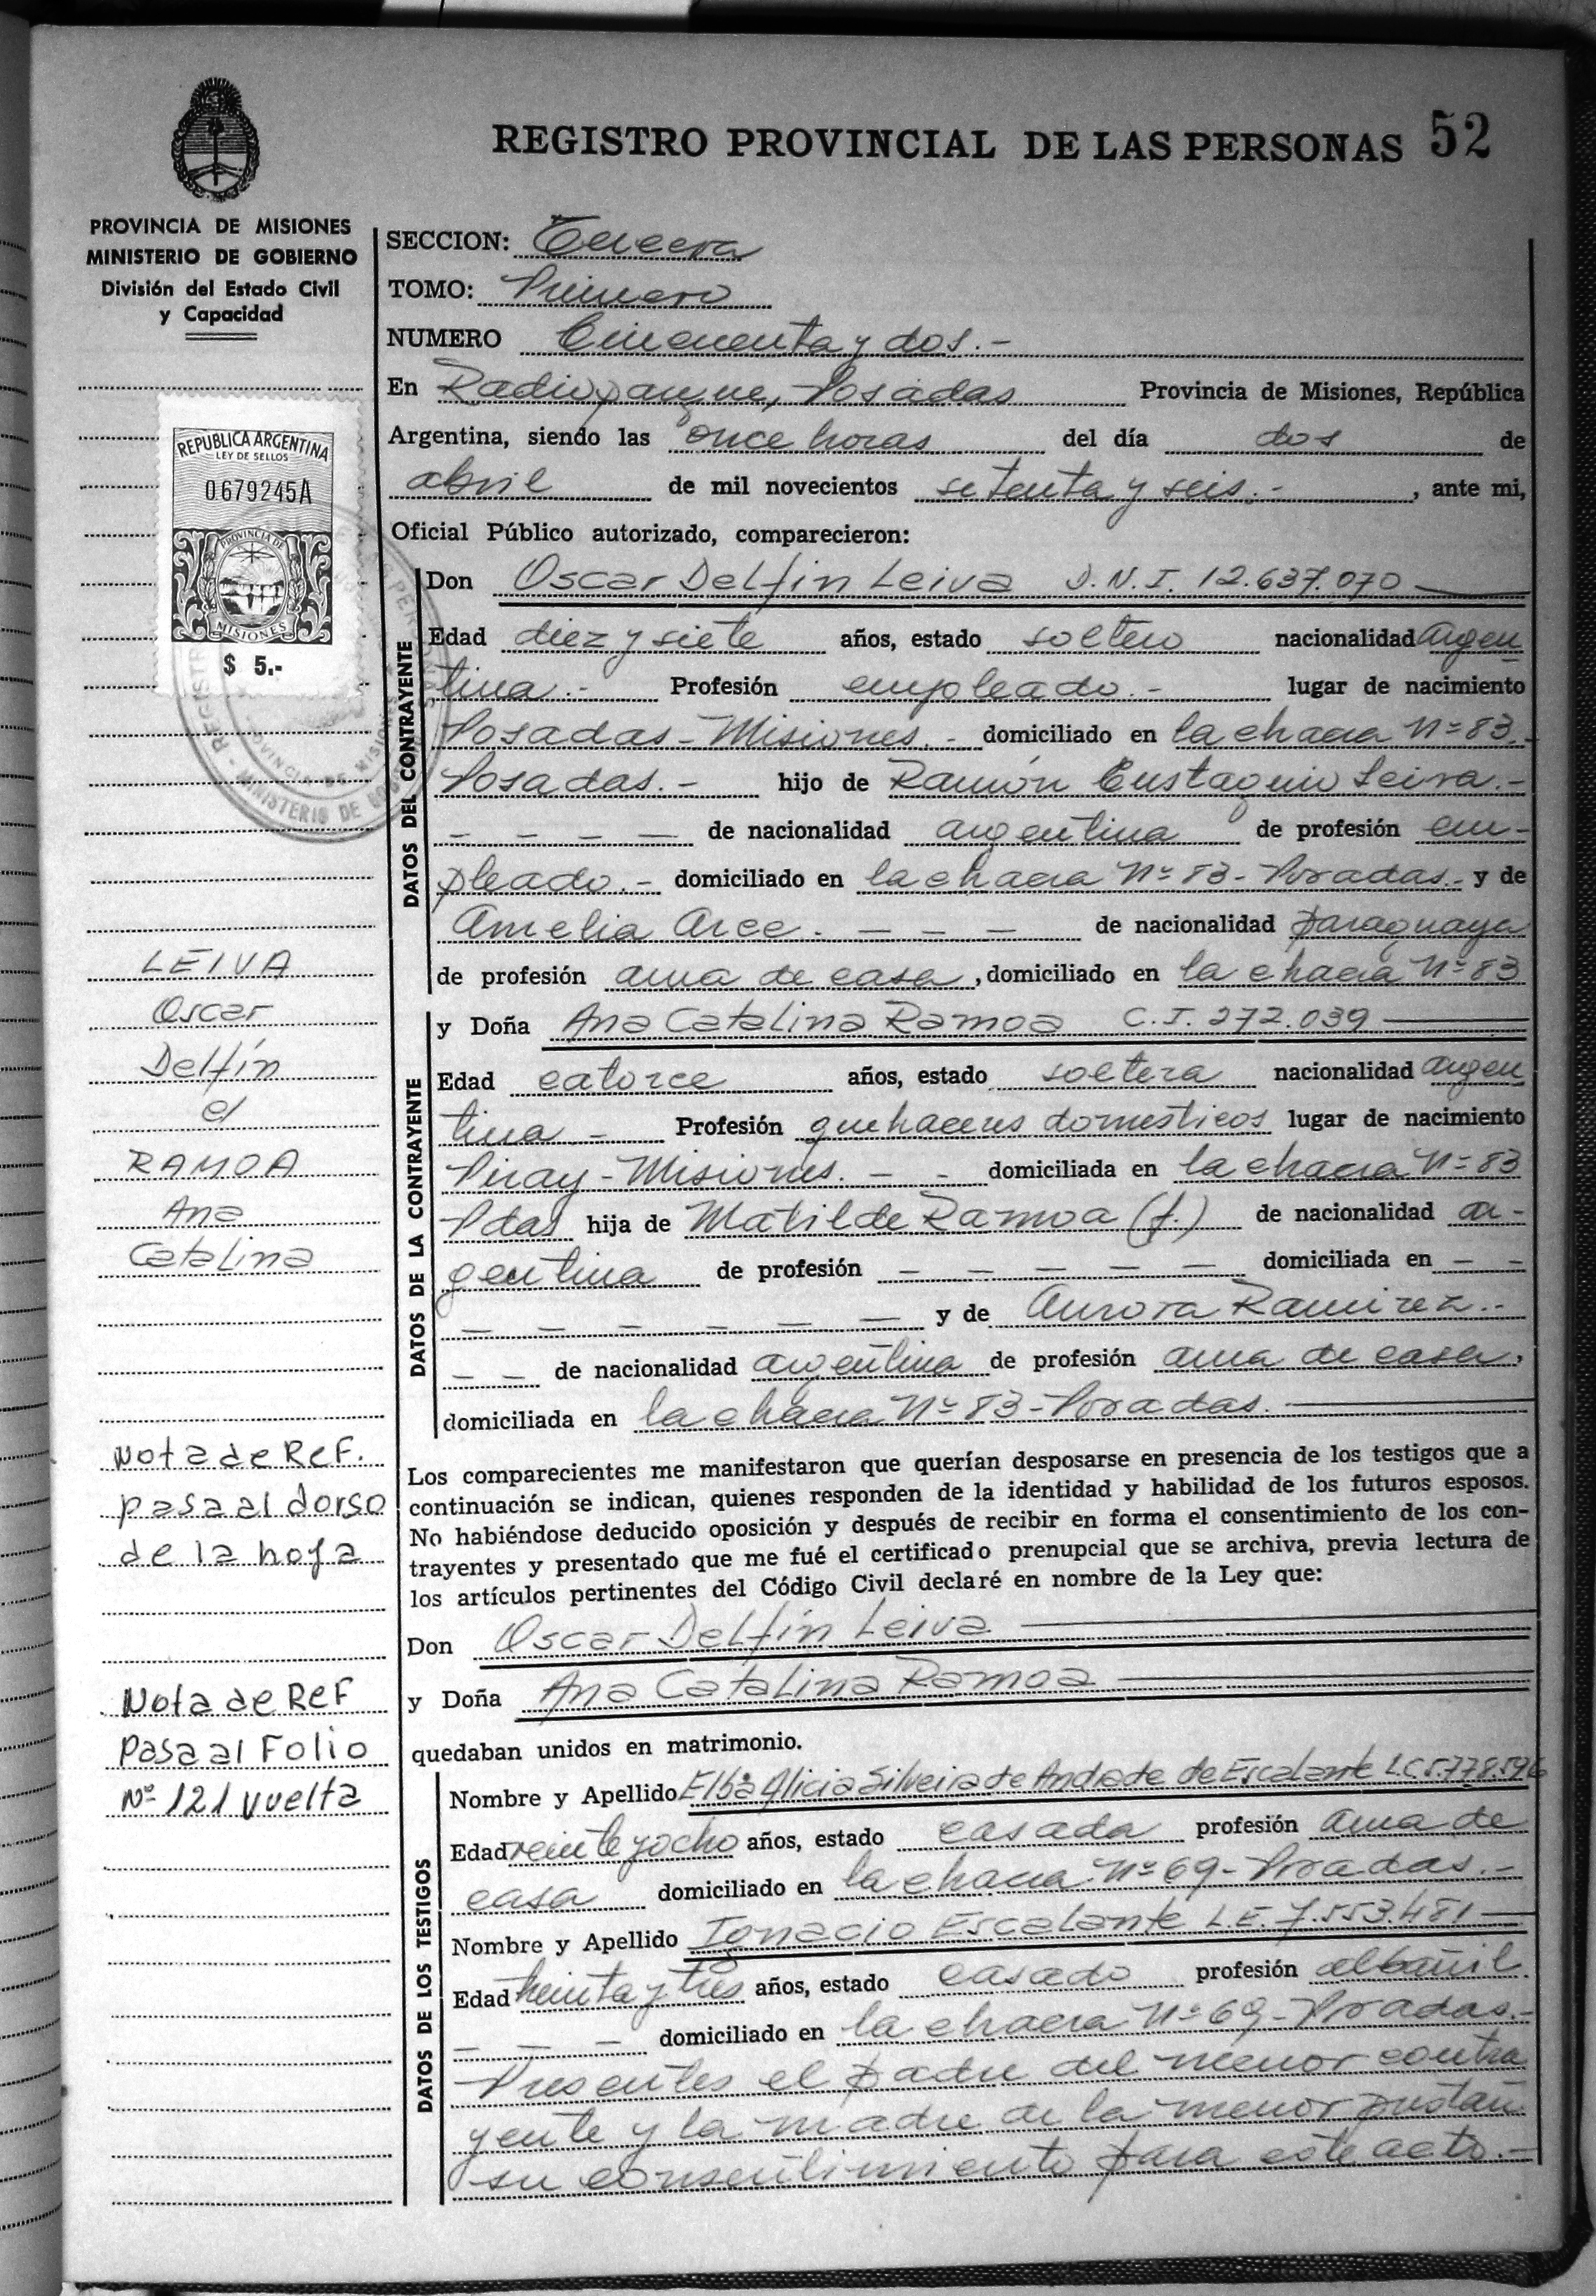 REGISTRO PROVINCIAL DE LAS PERSONAS 52
PROVINCIA DE MISIONES
MINISTERIO DE GOBIERNO
División del Estado Civil
y Capacidad
REPUBLICA ARGENTINA
LEY DE SELLOS
0679245A
PROVINCIA DE
MISIONES
$ 5.-
LEIVA
Oscar
Delfín
c/
RAMOA
Ana
Catalina
Nota de Ref.
pasa al dorso
de la hoja
Nota de Ref
Pasa al Folio
Nº 121 vuelta
SECCION: Tercera
TOMO: Primero
NUMERO Cincuenta y dos.-
En Radioparque, Posadas Provincia de Misiones, República
Argentina, siendo las once horas del día dos de
abril de mil novecientos setenta y seis.- , ante mi,
Oficial Público autorizado, comparecieron:
DATOS DEL CONTRAYENTE
Don Oscar Delfín Leiva D.N.I. 12.637.070
Edad diez y siete años, estado soltero nacionalidad argen
tina.- Profesión empleado.- lugar de nacimiento
Posadas-Misiones.- domiciliado en la chacra Nº 83.-
Posadas.- hijo de Ramón Eustaquio Leiva.-
- - - - de nacionalidad argentina de profesión em-
pleado.- domiciliado en la chacra Nº 83-Posadas.- y de
Amelia Arce. - - - de nacionalidad paraguaya
de profesión ama de casa , domiciliado en la chacra Nº 83
DATOS DE LA CONTRAYENTE
y Doña Ana Catalina Ramoa C.I. 272.039
Edad catorce años, estado soltera nacionalidad argen
tina.- Profesión quehaceres domésticos lugar de nacimiento
Piray-Misiones. - - domiciliada en la chacra Nº 83
Pdas hija de Matilde Ramoa (f.) de nacionalidad ar-
gentina de profesión - - - - - domiciliada en - -
- - - - - - y de Aurora Ramirez.-
- - de nacionalidad argentina de profesión ama de casa,
domiciliada en la chacra Nº 83-Posadas.
Los comparecientes me manifestaron que querían desposarse en presencia de los testigos que a
continuación se indican, quienes responden de la identidad y habilidad de los futuros esposos.
No habiéndose deducido oposición y después de recibir en forma el consentimiento de los con-
trayentes y presentado que me fué el certificado prenupcial que se archiva, previa lectura de
los artículos pertinentes del Código Civil declaré en nombre de la Ley que:
Don Oscar Delfín Leiva
y Doña Ana Catalina Ramoa
quedaban unidos en matrimonio.
DATOS DE LOS TESTIGOS
Nombre y Apellido Elba Alicia Silveira de Andrade de Escalante L.C 5.778.596
Edad veinte y ocho años, estado casada profesión ama de
casa domiciliado en la chacra Nº 69-Posadas.-
Nombre y Apellido Ignacio Escalante L.E. 7.553.481
Edad treinta y tres años, estado casado profesión albañil
- - - domiciliado en la chacra Nº 69-Posadas.-
Presentes el padre del menor contra
yente y la madre de la menor prestan
su consentimiento para este acto.-